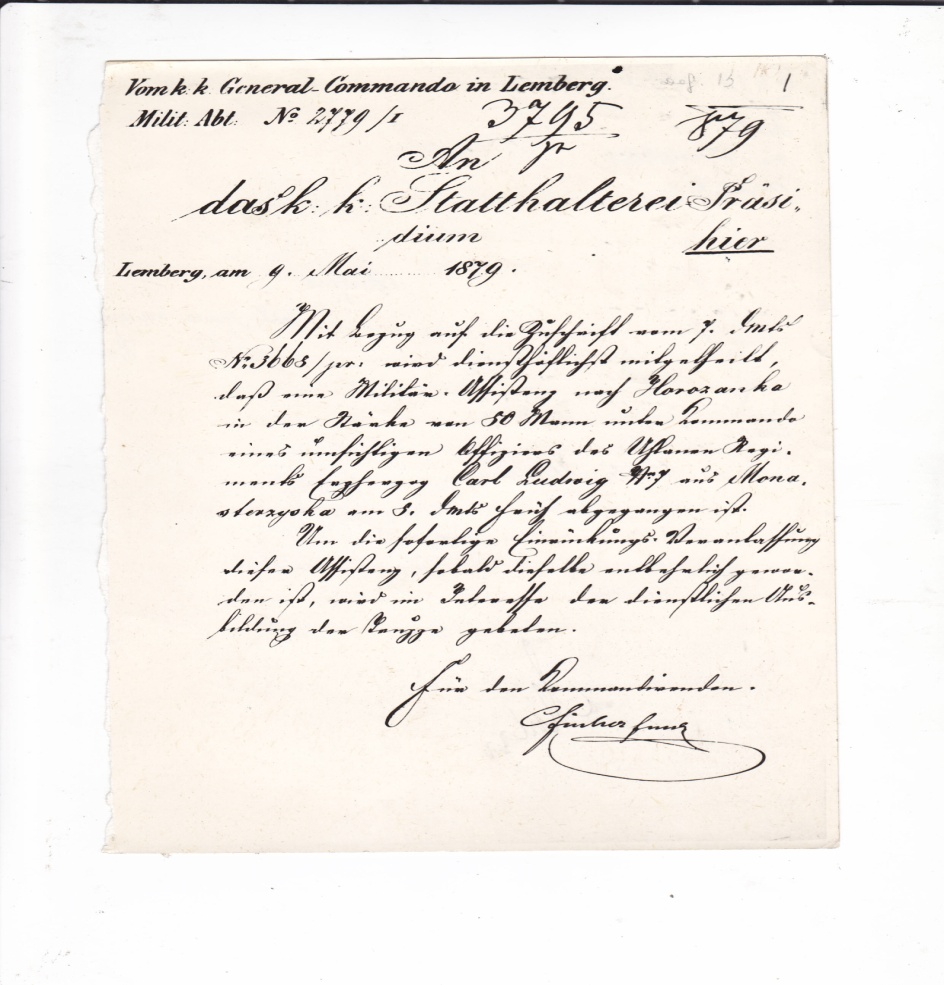 Vom k. k. General-Commando in Lemberg.
1
Milit: Abt: No 2779/I
3795
pr
879
An
das k: k: Statthalterei Präsi,,
dium
hier
Lemberg, am 9. Mai 1879.
Mit Bezug auf die Zuschrift vom 7. dmts
Nr. 3668/pr. wird diensthöflichst mitgetheilt,
daß eine Militär-Assistenz nach Horozanka
in der Stärke von 50 Mann unter Kommando
eines umsichtigen Offiziers des Uhlanen Regi-
ments Erzherzog Carl Ludwig Nr. 7 aus Mona-
sterzyska am 8. dmts früh abgegangen ist.
Um die sofortige Einrückungs-Veranlassung
dieser Assistenz, sobald dieselbe entbehrlich gewor-
den ist, wird im Interesse der dienstlichen Aus-
bildung der Truppe gebeten.
Für den Kommandirenden.